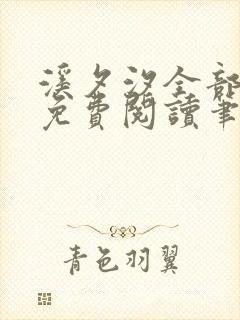 溪夕汐全部
免費閱讀筆
青色羽翼